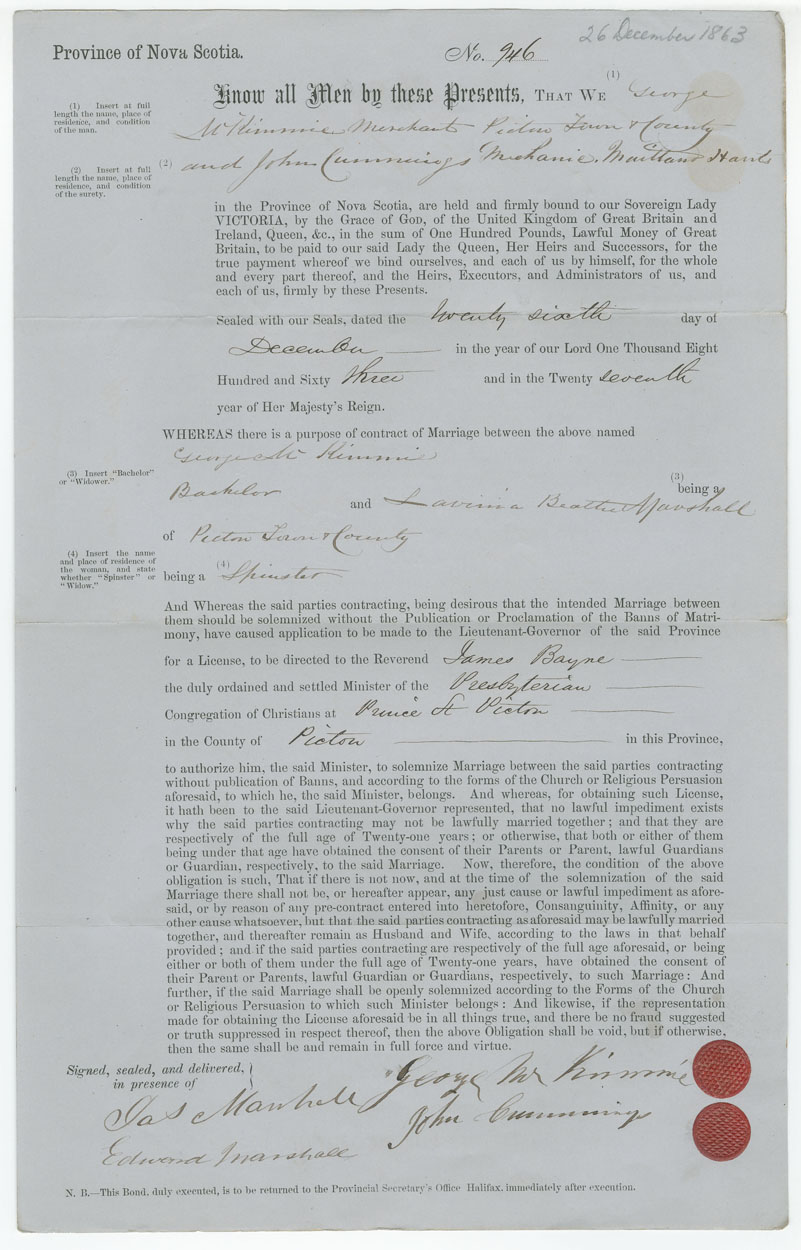 26 December 1863
Province of Nova Scotia.
No. 946
Know all Men by these Presents, THAT WE (1) George
McKimmie Merchant Pictou Town & County
(2) and John Cummings Mechanic, Maitland Hants
(1) Insert at full
length the name, place of
residence, and condition
of the man.
(2) Insert at full
length the name, place of
residence, and condition
of the surety.
in the Province of Nova Scotia, are held and firmly bound to our Sovereign Lady
VICTORIA, by the Grace of GOD, of the United Kingdom of Great Britain and
Ireland, Queen, &c., in the sum of One Hundred Pounds, Lawful Money of Great
Britain, to be paid to our said Lady the Queen, Her Heirs and Successors, for the
true payment whereof we bind ourselves, and each of us by himself, for the whole
and every part thereof, and the Heirs, Executors, and Administrators of us, and
each of us, firmly by these Presents.
Sealed with our Seals, dated the twenty sixth day of
December in the year of our Lord One Thousand Eight
Hundred and Sixty three and in the Twenty seventh
year of Her Majesty's Reign.
WHEREAS there is a purpose of contract of Marriage between the above named
George Mc Kimmie
(3) being a
(3) Insert "Bachelor"
or "Widower."
Bachelor and Lavinia Marshall
of Pictou Town & County
(4) Insert the name
and place of residence of
the woman, and state
whether "Spinster" or
"Widow."
being a (4) Spinster
And Whereas the said parties contracting, being desirous that the intended Marriage between
them should be solemnized without the Publication or Proclamation of the Banns of Matri-
mony, have caused application to be made to the Lieutenant-Governor of the said Province
for a License, to be directed to the Reverend James Bayne
the duly ordained and settled Minister of the Presbyterian
Congregation of Christians at Prince St Pictou
in the County of Pictou in this Province,
to authorize him, the said Minister, to solemnize Marriage between the said parties contracting
without publication of Banns, and according to the forms of the Church or Religious Persuasion
aforesaid, to which he, the said Minister, belongs. And whereas, for obtaining such License,
it hath been to the said Lieutenant-Governor represented, that no lawful impediment exists
why the said parties contracting may not be lawfully married together; and that they are
respectively of the full age of Twenty-one years; or otherwise, that both or either of them
being under that age have obtained the consent of their Parents or Parent, lawful Guardians
or Guardian, respectively, to the said Marriage. Now, therefore, the condition of the above
obligation is such, That if there is not now, and at the time of the solemnization of the said
Marriage there shall not be, or hereafter appear, any just cause or lawful impediment as afore-
said, or by reason of any pre-contract entered into heretofore, Consanguinity, Affinity, or any
other cause whatsoever, but that the said parties contracting as aforesaid may be lawfully married
together, and thereafter remain as Husband and Wife, according to the laws in that behalf
provided; and if the said parties contracting are respectively of the full age aforesaid, or being
either or both of them under the full age of Twenty-one years, have obtained the consent of
their Parent or Parents, lawful Guardian or Guardians, respectively, to such Marriage: And
further, if the said Marriage shall be openly solemnized according to the Forms of the Church
or Religious Persuasion to which such Minister belongs: And likewise, if the representation
made for obtaining the License aforesaid be in all things true, and there be no fraud suggested
or truth suppressed in respect thereof, then the above Obligation shall be void, but if otherwise,
then the same shall be and remain in full force and virtue.
Signed, sealed, and delivered, }
in presence of
George Mc Kimmie
Jas Marshall
John Cummings
Edward Marshall
N. B.—This Bond, duly executed, is to be returned to the Provincial Secretary's Office Halifax, immediately after execution.